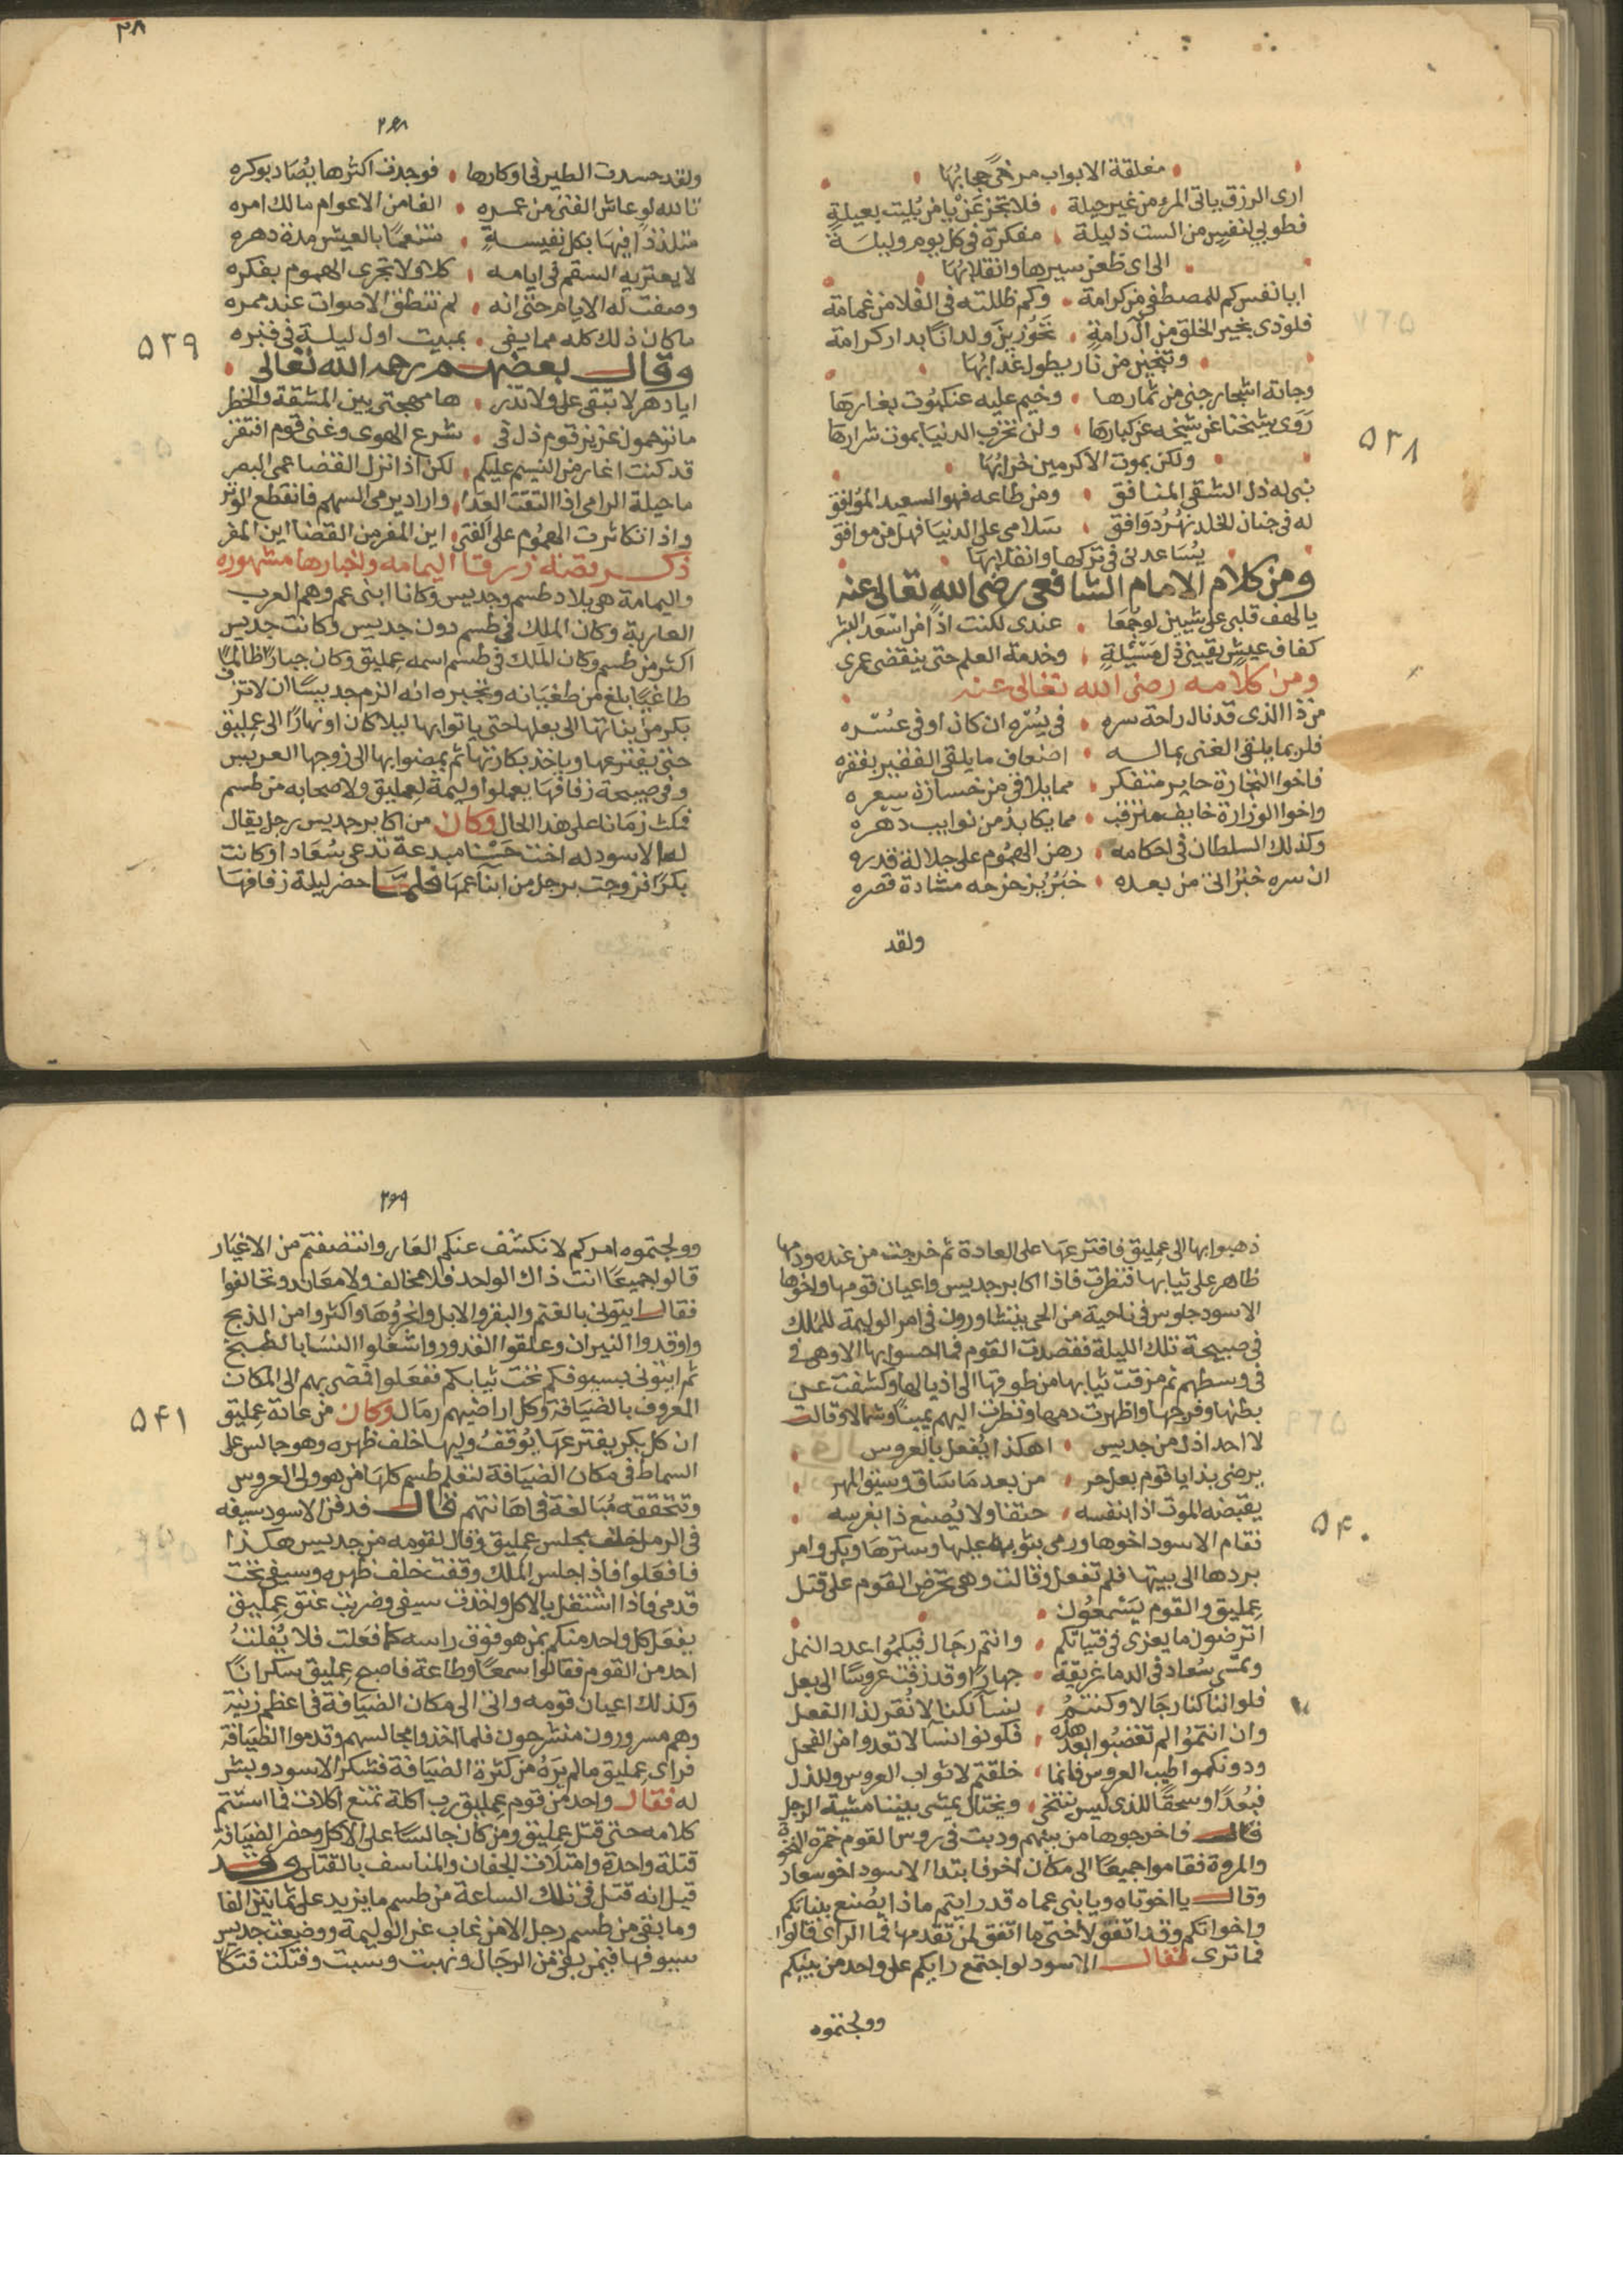 مغلقة الابواب مرخى حجابها
ارى الرزق ياتى المرء من غير حيلة فلا تجزعن يا من بليت بعيلة
فطوبى لنفس من الست ذليلة مفكرة فى كل يوم وليلة
الى اى ظعن سيرها وانقلابها
ايا نفس كم للمصطفى من كرامة وكم ظللته فى الفلا من غمامة
فلوذى بخير الخلق من ال رامة تحوزين ولدانا بدار كرامة
وتنجين من نار يطول عذابها
وجانة اشجار جنى من ثمارها وخيم عليه عنكبوت بغارها
روى شيخنا عن شيخه عن كبارها ولن تخرب الدنيا بموت شرارها
ولكن بموت الاكرمين خرابها
نبى له ذل الشقى المنافق ومن طاعه فهو السعيد الموافق
له فى جنان الخلد نهر دوافق سلامى على الدنيا فهل من موافق
يساعدنى فى تركها وانقلابها
ومن كلام الامام الشافعى رضى الله تعالى عنه
يا لهف قلبى على شيين لو جمعا عندى لكنت اذا من اسعد البشر
كفاف عيش يقينى ذل مسئلة وخدمة العلم حتى ينقضى عمرى
ومن كلامه رضى الله تعالى عنه
من ذا الذى قد نال راحة سره فى يسره ان كان او فى عسره
فلربما يلقى الغنى بماله اضعاف ما يلقى الفقير بفقره
فاخوا التجارة حاير متفكر مما يلاقى من خسارة سعره
واخوا الوزارة خايف مترقب مما يكابد من نوايب دهره
وكذلك السلطان فى احكامه رهن الهموم على جلالة قدره
ان سره خبر اتى من بعده خبر يزحزحه مشادة قصره
ولقد
٥٣٨
٣٨
٢٦٨
ولقد حسدت الطير فى اوكارها فوجدت اكثرها يصاد بوكره
تالله لو عاش الفتى من عمره الفا من الاعوام مالك امره
متلذذا فيها بكل نفيسة متنعما بالعيش مدة دهره
لا يعتريه السقم فى ايامه كلا ولا تجرى الهموم بفكره
وصفت له الايام حتى انه لم تنطق الاصوات عند ممره
ما كان ذلك كله مما يفى بمبيت اول ليلة فى قبره
وقال بعضهم رحمه الله تعالى
ايا دهر لا تبقى على ولا تذر ها مهجتى بين المشقة والخطر
ما ترحمون عزيز قوم ذل فى شرع الهوى وغنى قوم افتقر
قد كنت اغار من النسيم عليكم لكن اذا نزل القضا عمى البصر
ما حيلة الرامى اذا التقت العدا واراد يرمى السهم فانقطع الوتر
واذا تكاثرت الهموم على الفتى اين المفر من القضا اين المفر
ذكر قصة زرقا اليمامه واخبارها مشهوره
واليمامة هى بلاد طسم وجديس وكانا ابنى عم وهم العرب
العاربة وكان الملك فى طسم دون جديس وكانت جديس
اكثر من طسم وكان الملك فى طسم اسمه عمليق وكان جبارا ظالما
طاغيا بلغ من طغيانه وتجبره انه الزم جديسا ان لا تزف
بكر من بناتها الى بعلها حتى ياتوا بها ليلا كان او نهارا الى عمليق
حتى يفترعها وياخذ بكارتها ثم يمضوا بها الى زوجها العريس
وفى صبيحة زفافها يعملوا وليمة لعمليق ولاصحابه من طسم
فمكث زمانا على هذا الحال وكان من اكابر جديس رجل يقال
له الاسود له اخت حسنا مبدعة تدعى سعاد اوكانت
بكرا فزوجت برجل من ابنا عمها فلما حضر ليلة زفافها
٥٣٩
ذهبوا بها الى عمليق فافترعها على العادة ثم خرجت من عنده ودمها
ظاهر على ثيابها فنظرت فاذا اكابر جديس واعيان قومها واخوها
الاسود جلوس فى ناحية من الحى يتشاورون فى امر الوليمة للملك
فى صبيحة تلك الليلة فقصدت القوم فما احسوا بها الا وهى فى
فى وسطهم ثم مزقت ثيابها من طوقها الى اذيالها وكشفت عن
بطنها وفرجها واظهرت دمها ونظرت اليهم يمينا وشمالا وقالت
لا احد اذل من جديس اهكذا يفعل بالعروس
يرضى بذا يا قوم بعل حر من بعد ما ساق وسيق المهر
يقبضه الموت اذا بنفسه حتفا ولا يصنع ذا بعرسه
فقام الاسود اخوها ورمى بثوبه عليها وسترها وبكى وامر
بردها الى بيتها فلم تفعل وقالت وهى تحرض القوم على قتل
عمليق والقوم يسمعون
اترضون ما يعزى فى فتياتكم وانتم رجال فيكموا عدد النمل
وتمسى سعاد فى الدما غريقة جهارا وقد زفت عروسا الى بعل
فلو اننا كنا رجالا وكنتم نسا لكنا لا نقر لذا الفعل
وان انتموا لم تغضبوا بعد هذه فكونوا نسا لا تعدوا من الفحل
ودونكموا طيب العروس فانما خلقتم لاثواب العروس وللذل
فبعدا وسحقا للذى ليس ينتخى ويختال يمشى بيننا مشية الرجل
قال فاخرجوها من بينهم ودبت فى روس القوم خمرة النخوة
والمروة فقاموا جميعا الى مكان اخر فابتدا الاسود اخو سعاد
وقال يا اخوتاه ويا بنى عماه قد رايتم ماذا يصنع ببناتكم
واخواتكم وقد اتفق لاختى ما اتفق لمن تقدمها فما الراى قالوا
فما ترى فقال الاسود لو اجتمع رايكم على واحد من بينكم
وولجتموه
٥٤٠
٢٦٩
وولجتموه امركم لانكشف عنكم العار وانتصفتم من الاغيار
قالوا جميعا انت ذاك الواحد فلا مخالف ولا معاند وتحالفوا
فقال ايتونى بالغنم والبقر والابل وانحروها واكثروا من الذبح
واوقدوا النيران وعلقوا القدور واشغلوا النسا بالطبيخ
ثم ايتونى بسيوفكم تحت ثيابكم ففعلوا فمضى بهم الى المكان
المعروف بالضيافة وكل اراضيهم رمال وكان من عادة عمليق
ان كل بكر يفترعها يوقف وليها خلف ظهره وهو جالس على
السماط فى مكان الضيافة لتعلم طسم كلها من هو ولى العروس
وتتحققه مبالغة فى اهانتهم قال فدفن الاسود سيفه
فى الرمل خلف مجلس عمليق وقال لقومه من جديس هكذا
فافعلوا فاذا جلس الملك وقفت خلف ظهره وسيفى تحت
قدمى فاذا اشتغل بالاكل واخذت سيفى وضربت عنق عمليق
يفعل كل واحد منكم بمن هو فوق راسه كما فعلت فلا يفلت
احد من القوم فقالوا سمعا وطاعة فاصبح عمليق سكرانا
وكذلك اعيان قومه واتى الى مكان الضيافة فى اعظم زينة
وهم مسرورون منشرحون فلما اخذوا مجالسهم وقدموا الضيافة
فراى عمليق مالم يره من كثرة الضيافة فشكر الاسود وبشر
له فقال واحد من قوم عمليق رب اكلة تمنع اكلات فما استتم
كلامه حتى قتل عمليق ومن كان جالسا على الاكل وحضر الضيافة
قتلة واحدة وامتلات الجفان والمناسف بالقتلى وقد
قيل انه قتل فى تلك الساعة من طسم ما يزيد على ثمانين الفا
وما بقى من طسم رجل الا من غاب عن الوليمة ووضعت جديس
سيوفها فيمن بقى من الرجال ونهبت وسبت وفتكت فتكا
٥٤١